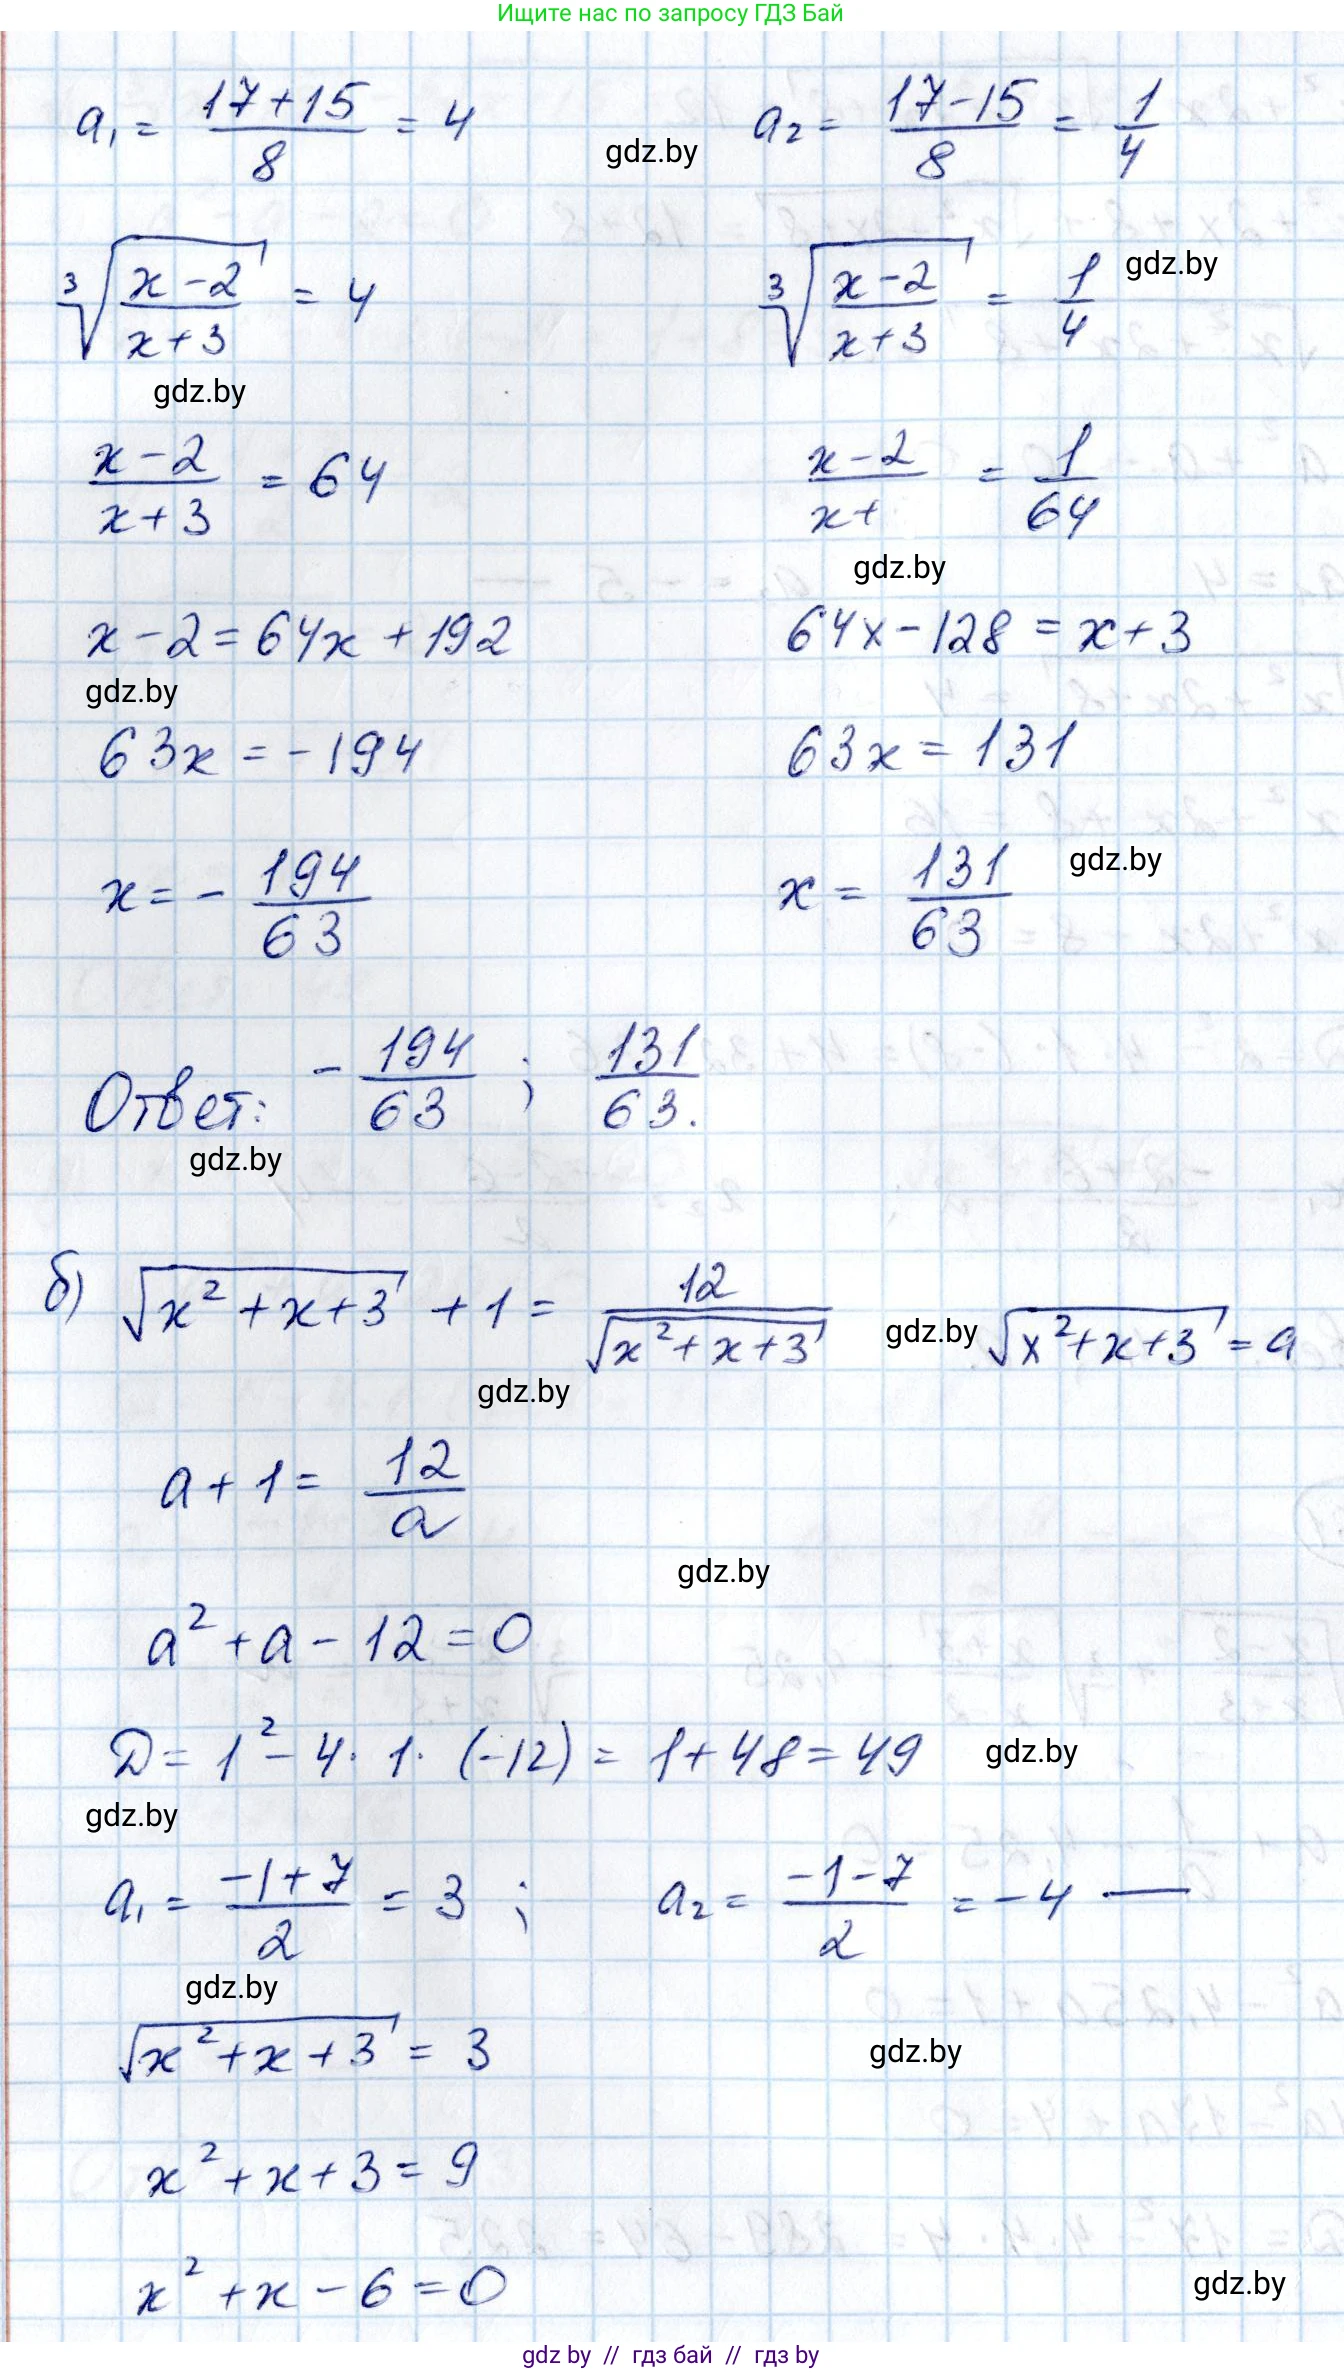 Ищите нас по запросу ГДЗ Бай
a₁ = (17+15)/8 = 4    gdz.by    a₂ = (17-15)/8 = 1/4
∛((x-2)/(x+3)) = 4    ∛((x-2)/(x+3)) = 1/4    gdz.by
gdz.by
(x-2)/(x+3) = 64    (x-2)/(x+ = 1/64
gdz.by
x-2 = 64x+192    64x-128 = x+3
gdz.by
63x = -194    63x = 131
x = -194/63    x = 131/63    gdz.by
Ответ: -194/63 ; 131/63.
gdz.by
б) √(x²+x+3) + 1 = 12/√(x²+x+3)    gdz.by    √(x²+x+3) = a
gdz.by
a+1 = 12/a
gdz.by
a²+a-12=0
D = 1²-4·1·(-12) = 1+48=49    gdz.by
gdz.by
a₁ = (-1+7)/2 = 3 ;    a₂ = (-1-7)/2 = -4 —
gdz.by
√(x²+x+3) = 3    gdz.by
x²+x+3=9
x²+x-6=0    gdz.by
gdz by // гдз бай // gdz by